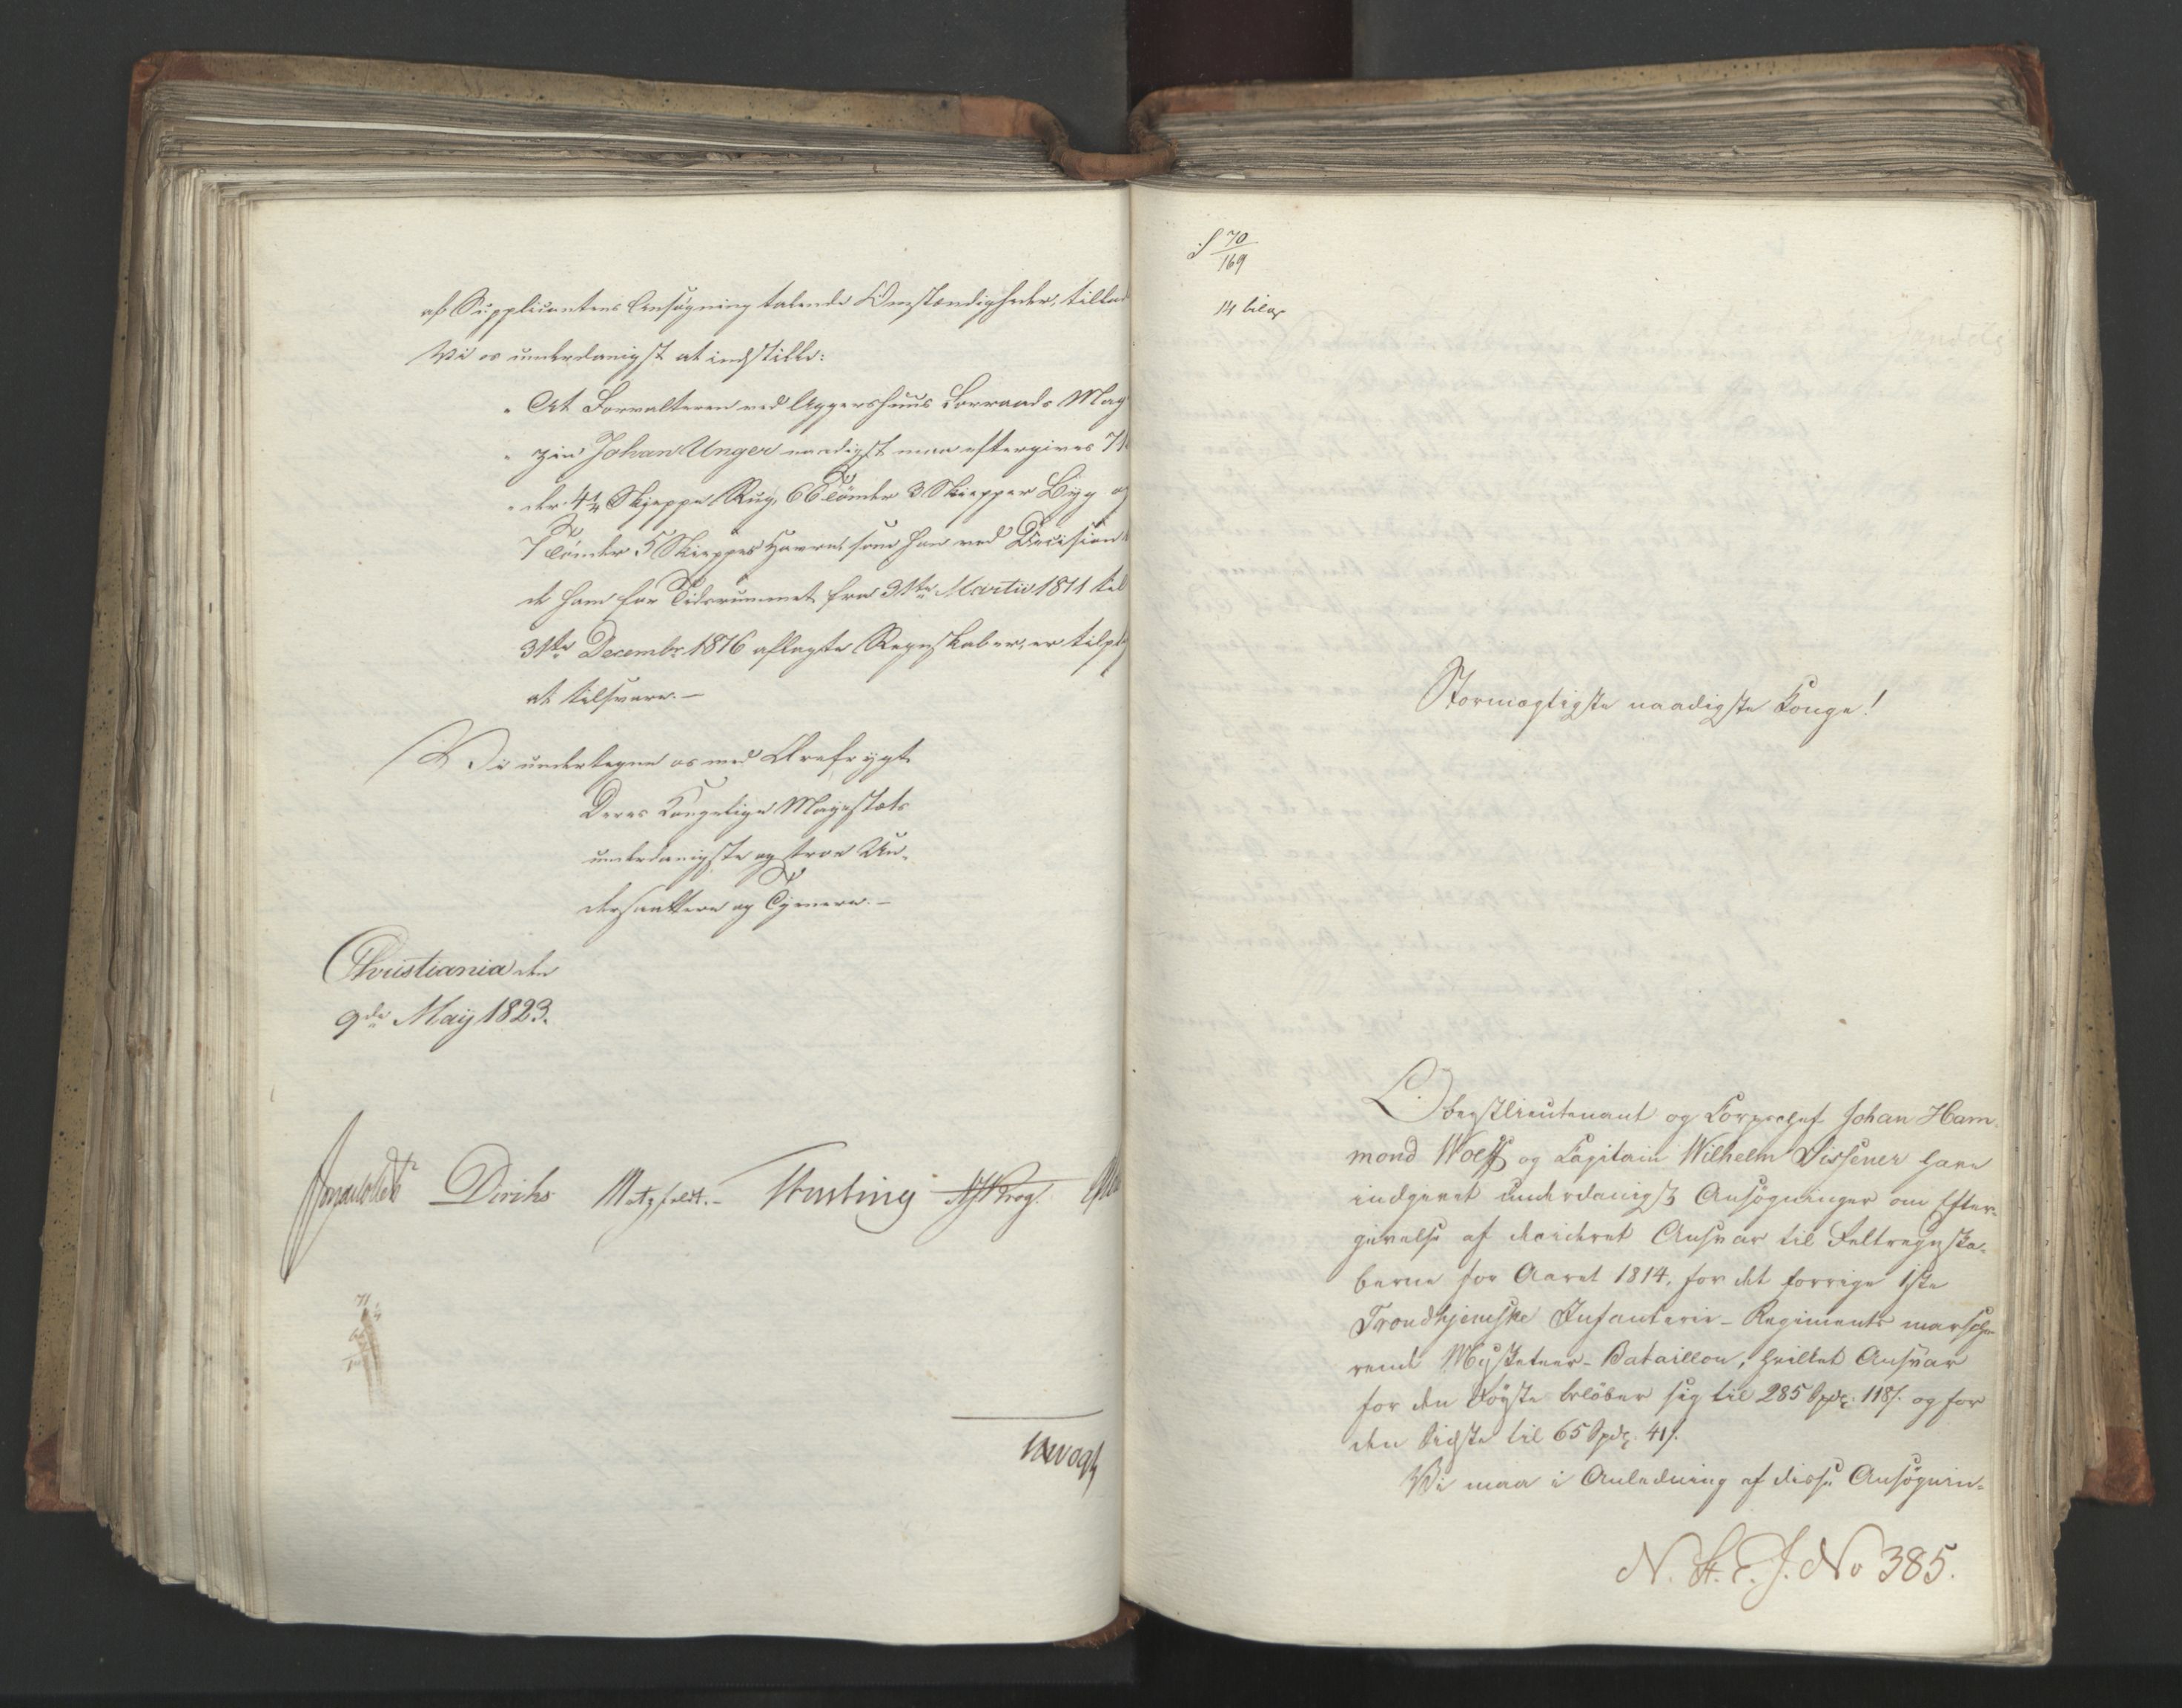 af Supplicantens Ansøgning talende Omstændigheder, tillad
Vi os underdanigst at indstille:
" At Forvalteren ved Aggershuus Forraads Mag
" zin Johan Unger naadigst maa eftergives 71
" der 4¼ Skjeppe Rug, 66 Tönder 3 Skiepper Byg og
7 Tönder 5 Skiepper Havre som han ved Decision
de ham for Tidsrummet fra 31te Martii 1811 til
31te Decembr 1816 aflagte Regnskaber, er tilpl
at tilsvare. —
Vi undertegne os med Ærefrygt
Deres Kongelige Majestæts
underdanigste og troe Un-
dersaatter og Tjenere. —
Christiania den
9de May 1823.
Diriks Motzfeldt. — Krog.
71
S 70/169
14 bilag
Stormægtigste naadigste Konge!
Oberstlieutenant og Corpschef Johan Ham-
mond Wolff og Capitain Wilhelm Sissener have
indgivet underdanigst Ansøgninger om Efter-
givelse af decideret Ansvar til Feltregnska-
berne for Aaret 1814, for det forrige 1ste
Trondhjemske Infanterie-Regiments marsche-
rende Mysketeer-Bataillon, hvilket Ansvar
for den Föyste beløber sig til 285 Spd. 118/. og for
den Sidste til 65 Spd. 41/.
Vi maa i Anledning af disse Ansøgnin-
N. St. E. J. No 385.